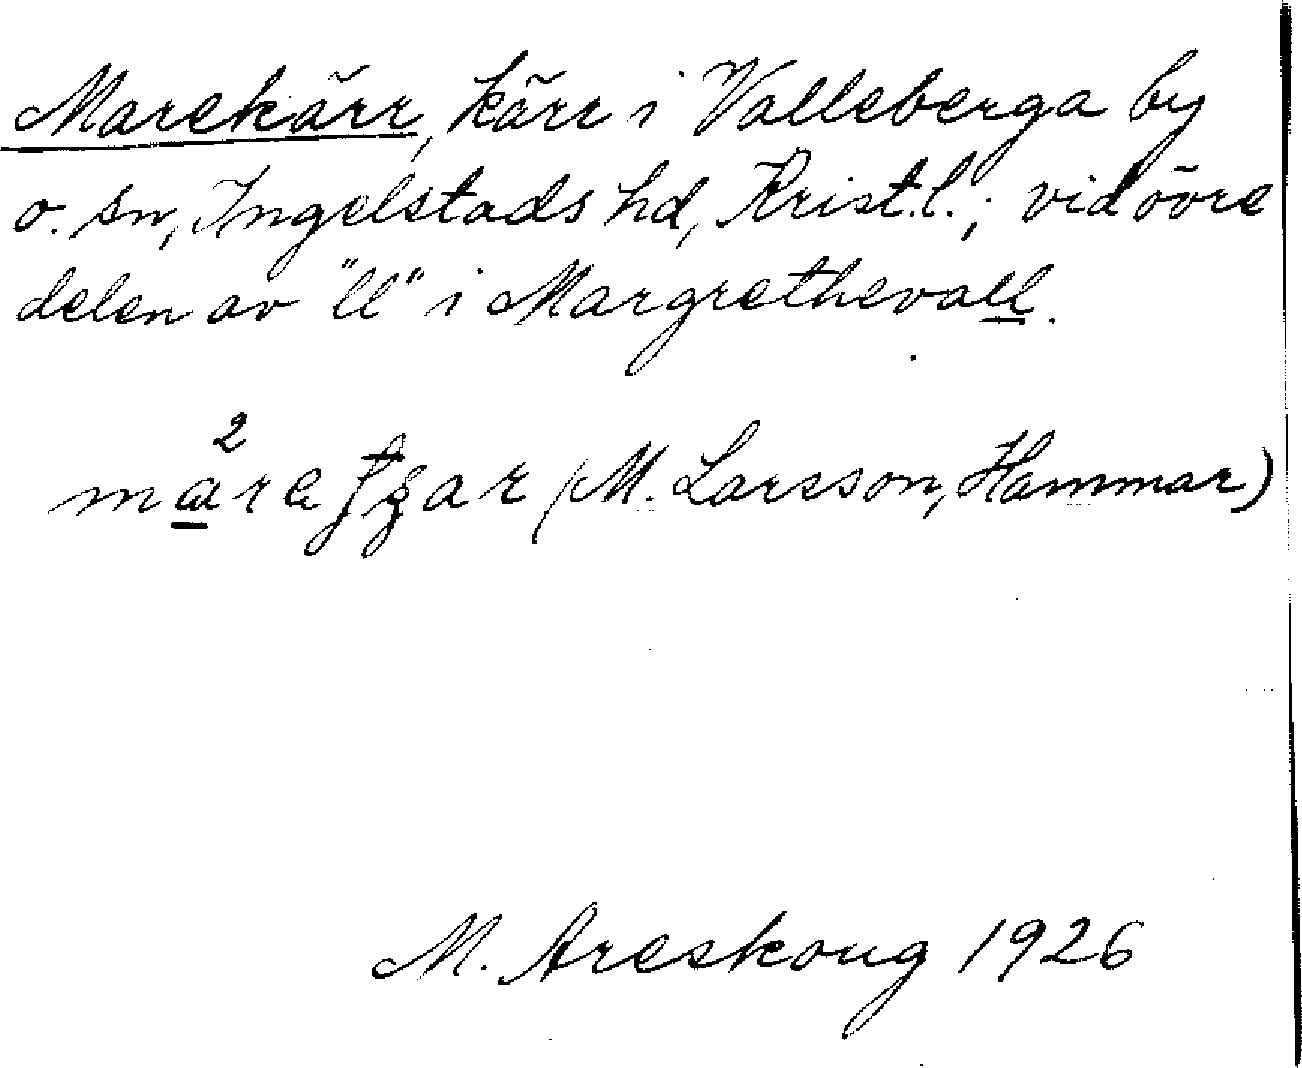 Marekärr, kärr i Valleberga by
o. sn, Ingelstads hd, Krist.l.; vid övre
delen av "ll" i Margrethevall.
2
(M. Larsson, Hammar)
M. Areskoug 1926